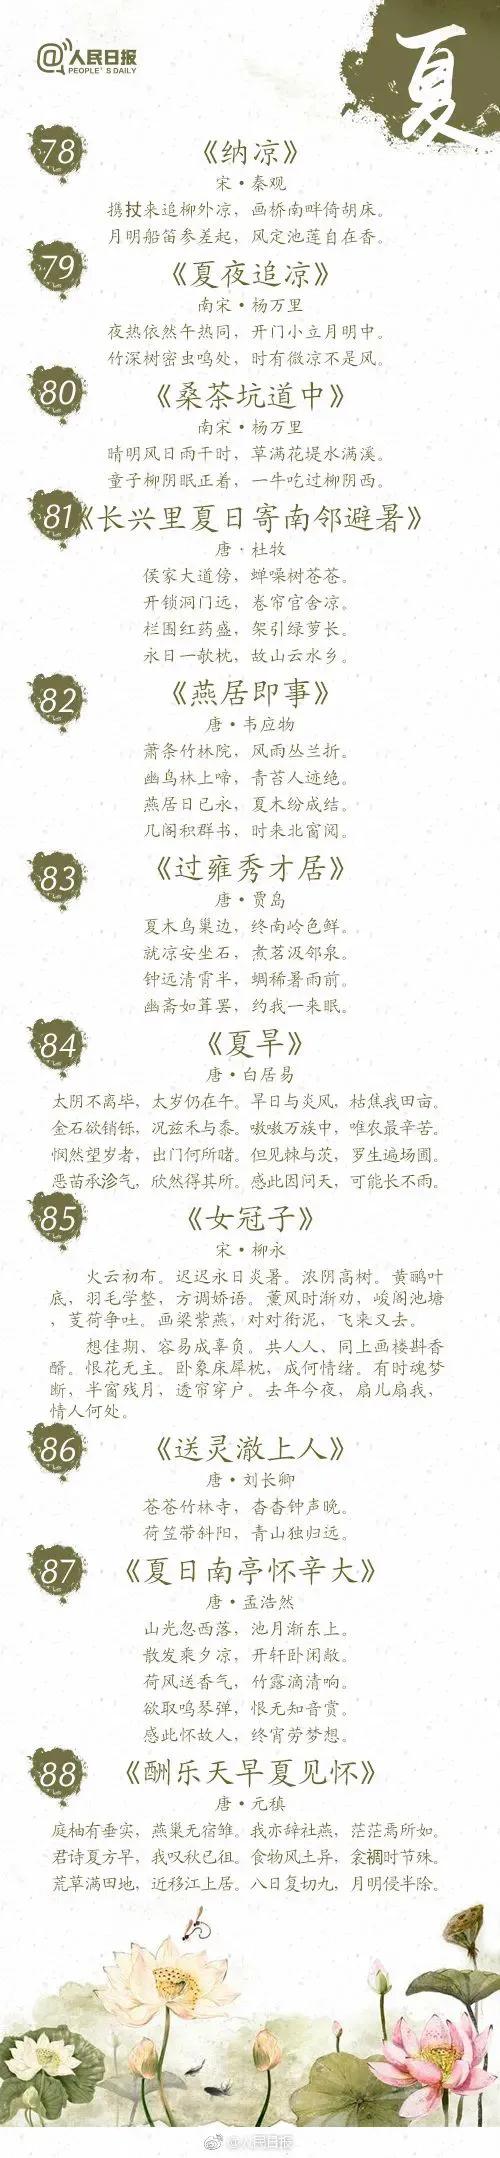 人民日报
PEOPLE'S DAILY
夏
78
《纳凉》
宋·秦观
携扙来追柳外凉，画桥南畔倚胡床。
月明船笛参差起，风定池莲自在香。
79
《夏夜追凉》
南宋·杨万里
夜热依然午热同，开门小立月明中。
竹深树密虫鸣处，时有微凉不是风。
80
《桑茶坑道中》
南宋·杨万里
晴明风日雨干时，草满花堤水满溪。
童子柳阴眠正着，一牛吃过柳阴西。
81
《长兴里夏日寄南邻避暑》
唐·杜牧
侯家大道傍，蝉噪树苍苍。
开锁洞门远，卷帘官舍凉。
栏围红药盛，架引绿萝长。
永日一欹枕，故山云水乡。
82
《燕居即事》
唐·韦应物
萧条竹林院，风雨丛兰折。
幽鸟林上啼，青苔人迹绝。
燕居日已永，夏木纷成结。
几阁积群书，时来北窗阅。
83
《过雍秀才居》
唐·贾岛
夏木鸟巢边，终南岭色鲜。
就凉安坐石，煮茗汲邻泉。
钟远清霄半，蜩稀暑雨前。
幽斋如葺罢，约我一来眠。
84
《夏旱》
唐·白居易
太阴不离毕，太岁仍在午。旱日与炎风，枯焦我田亩。
金石欲销铄，况兹禾与黍。嗷嗷万族中，唯农最辛苦。
悯然望岁者，出门何所睹。但见棘与茨，罗生遍场圃。
恶苗承沴气，欣然得其所。感此因问天，可能长不雨。
85
《女冠子》
宋·柳永
火云初布。迟迟永日炎暑。浓阴高树。黄鹂叶
底，羽毛学整，方调娇语。薰风时渐劝，峻阁池塘
，芰荷争吐。画梁紫燕，对对衔泥，飞来又去。
想佳期、容易成辜负。共人人、同上画楼斟香
醑。恨花无主。卧象床犀枕，成何情绪。有时魂梦
断，半窗残月，透帘穿户。去年今夜，扇儿扇我，
情人何处。
86
《送灵澈上人》
唐·刘长卿
苍苍竹林寺，杳杳钟声晚。
荷笠带斜阳，青山独归远。
87
《夏日南亭怀辛大》
唐·孟浩然
山光忽西落，池月渐东上。
散发乘夕凉，开轩卧闲敞。
荷风送香气，竹露滴清响。
欲取鸣琴弹，恨无知音赏。
感此怀故人，终宵劳梦想。
88
《酬乐天早夏见怀》
唐·元稹
庭柚有垂实，燕巢无宿雏。我亦辞社燕，茫茫焉所如。
君诗夏方早，我叹秋已徂。食物风土异，衾裯时节殊。
荒草满田地，近移江上居。八日复切九，月明侵半除。
@人民日报